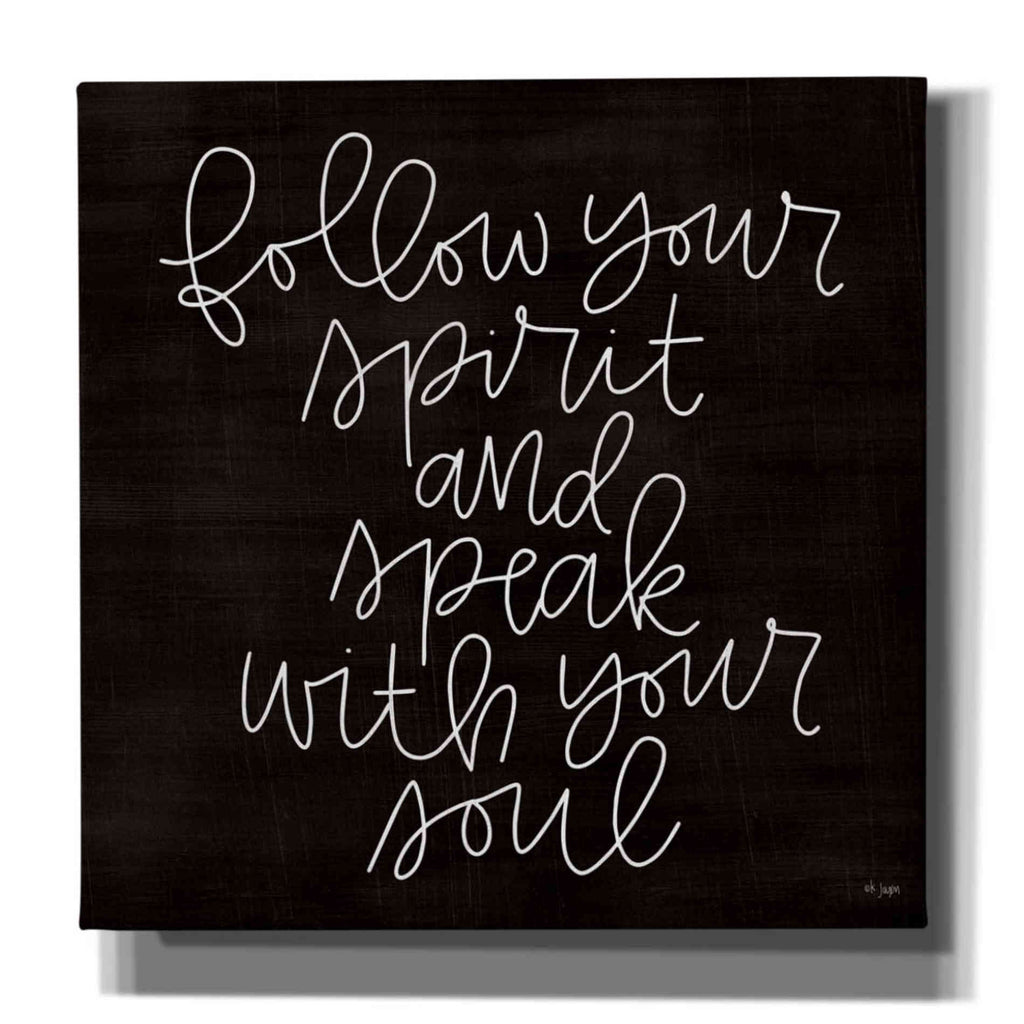 follow your
spirit
and
speak
with your
soul